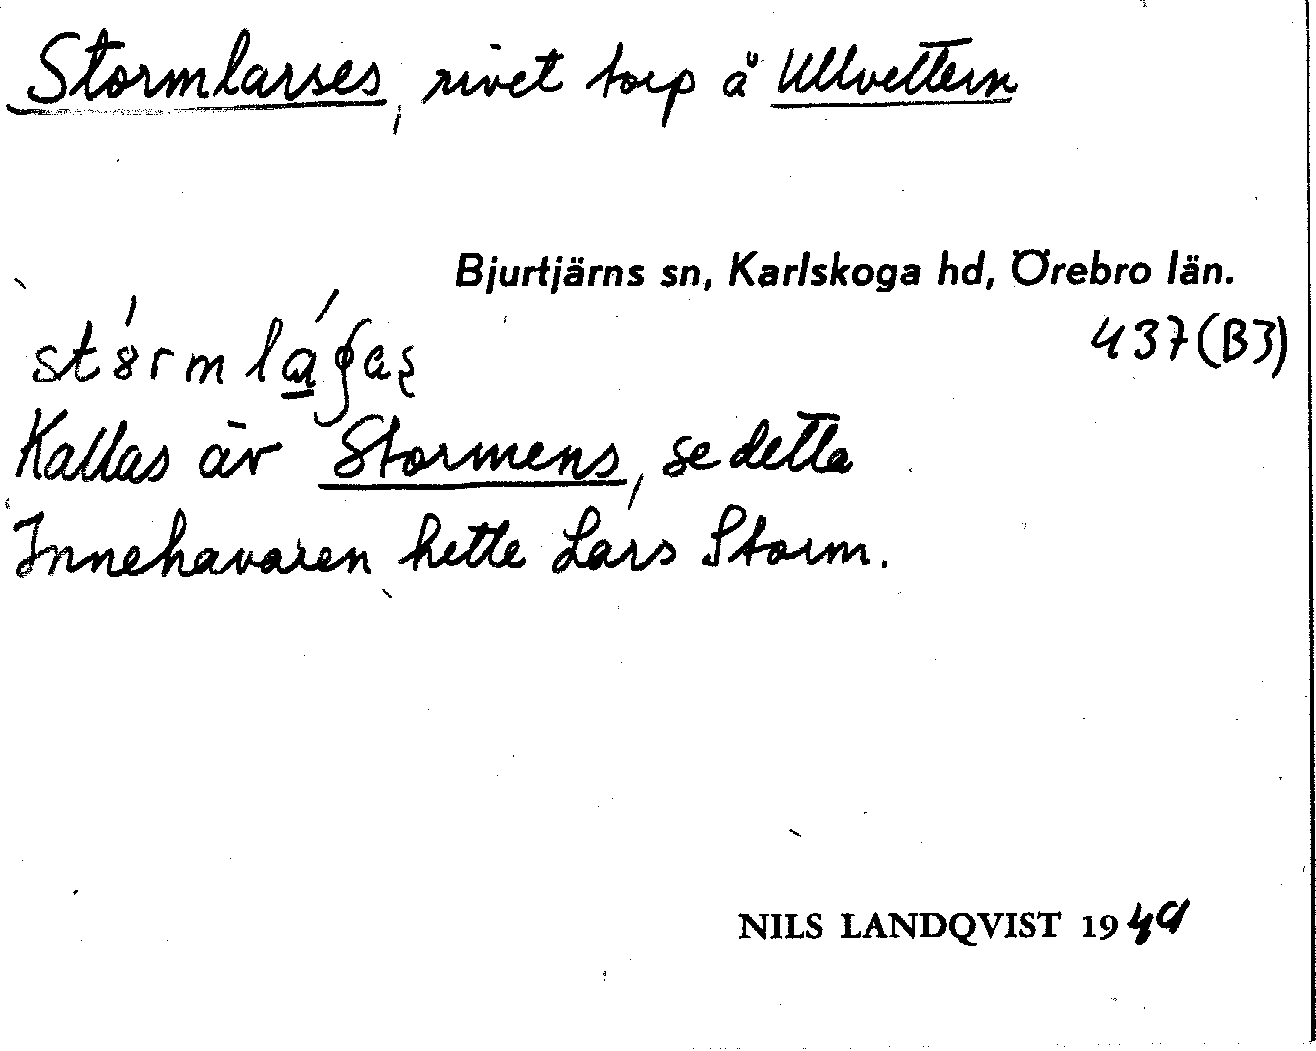 Stormlarses, rivet torp å Ullvettern
Bjurtjärns sn, Karlskoga hd, Örebro län.
437(B3)
Kallas äv Stormens, se detta
Innehavaren hette Lars Storm.
NILS LANDQVIST 1949